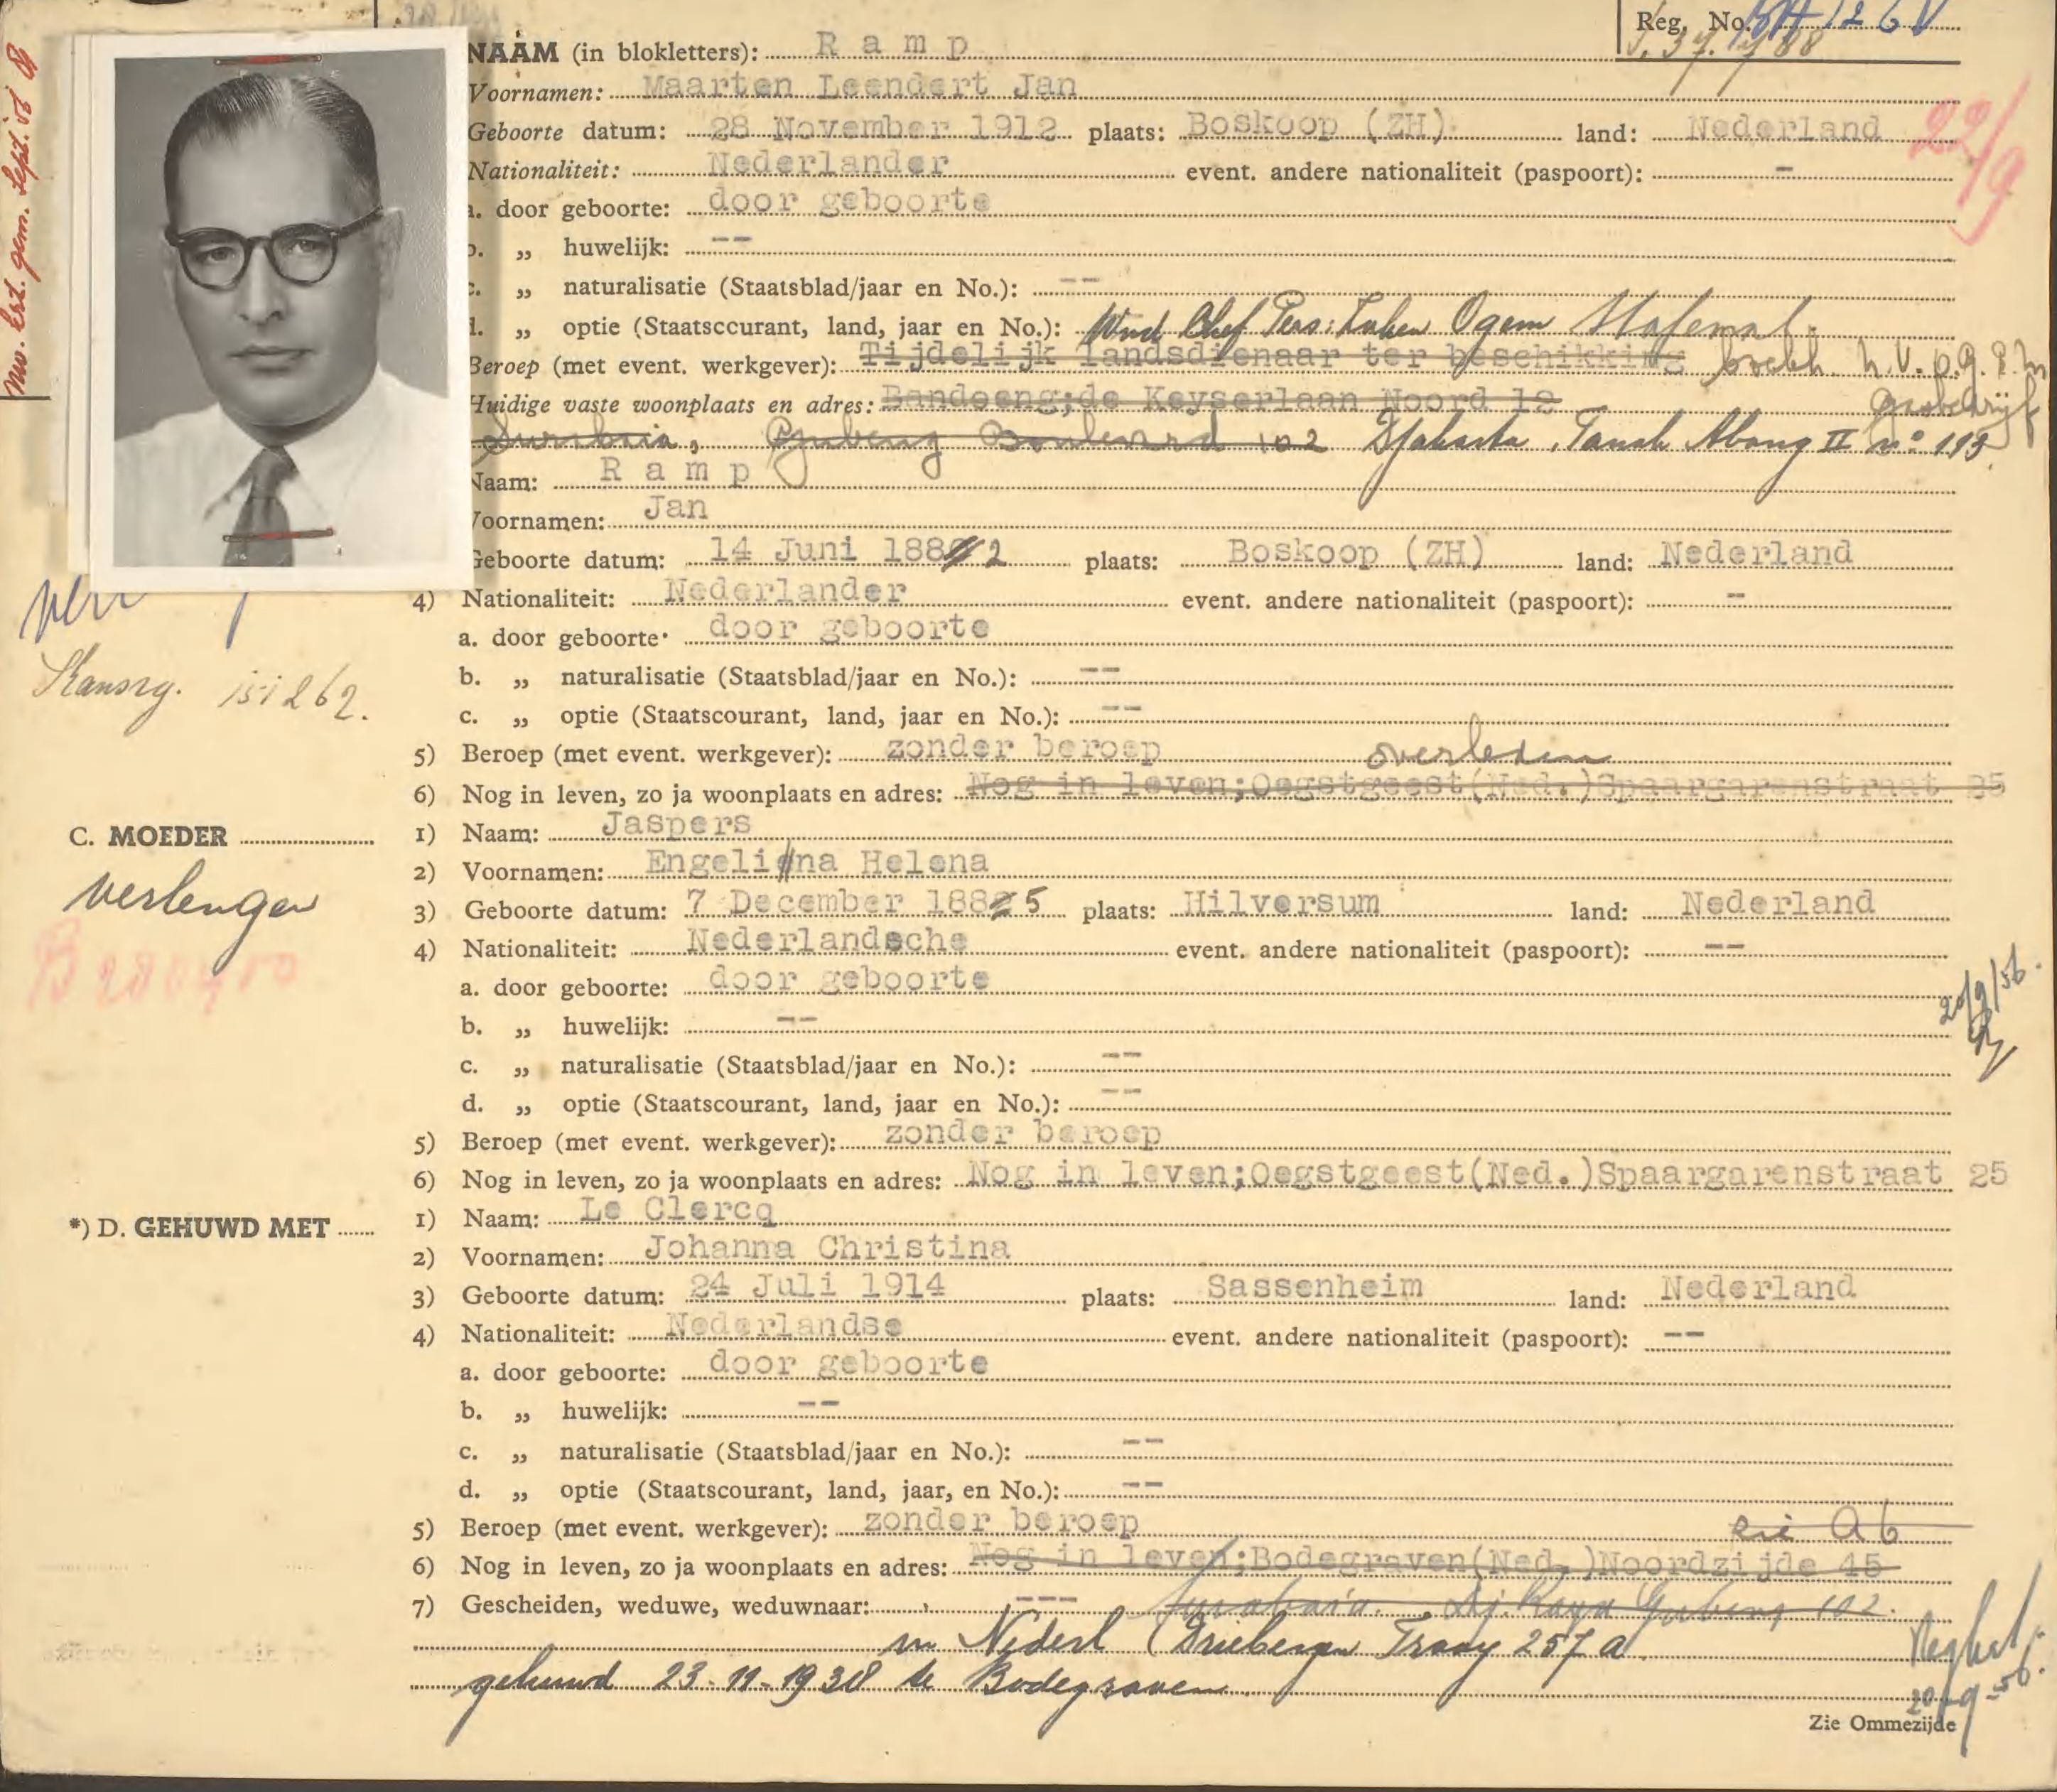 Reg. No.
NAAM (in blokletters): Ramp
Voornamen: Maarten Leendert Jan
Geboorte datum: 28 November 1912 plaats: Boskoop (ZH) land: Nederland
22/9
Nationaliteit: Nederlander event. andere nationaliteit (paspoort): -
a. door geboorte: door geboorte
b. „ huwelijk: --
c. „ naturalisatie (Staatsblad/jaar en No.): --
d. „ optie (Staatsccurant, land, jaar en No.): Chef Ogem
Beroep (met event. werkgever): Tijdelijk landsdienaar ter beschikking N.V. O.G.E.M
Huidige vaste woonplaats en adres: Bandoeng;de Keyserlaan Noord 12 gasbedrijf
Surabaia, Gubeng Boulevard 102 Djakarta, Tanah Abang II no 113
Naam: Ramp
Voornamen: Jan
Geboorte datum: 14 Juni 188 2 plaats: Boskoop (ZH) land: Nederland
4) Nationaliteit: Nederlander event. andere nationaliteit (paspoort): -
a. door geboorte: door geboorte
b. „ naturalisatie (Staatsblad/jaar en No.): --
c. „ optie (Staatscourant, land, jaar en No.): --
5) Beroep (met event. werkgever): zonder beroep overleden
6) Nog in leven, zo ja woonplaats en adres: Nog in leven;Oegstgeest(Ned.)Spaargarenstraat 25
C. MOEDER
1) Naam: Jaspers
2) Voornamen: Engelina Helena
verlengen
3) Geboorte datum: 7 December 188 5 plaats: Hilversum land: Nederland
4) Nationaliteit: Nederlandsche event. andere nationaliteit (paspoort): --
a. door geboorte: door geboorte
20/9/56.
b. „ huwelijk: --
c. „ naturalisatie (Staatsblad/jaar en No.): --
d. „ optie (Staatscourant, land, jaar en No.): --
5) Beroep (met event. werkgever): zonder beroep
6) Nog in leven, zo ja woonplaats en adres: Nog in leven;Oegstgeest(Ned.)Spaargarenstraat 25
*) D. GEHUWD MET
1) Naam: Le Clercq
2) Voornamen: Johanna Christina
3) Geboorte datum: 24 Juli 1914 plaats: Sassenheim land: Nederland
4) Nationaliteit: Nederlandse event. andere nationaliteit (paspoort): --
a. door geboorte: door geboorte
b. „ huwelijk: --
c. „ naturalisatie (Staatsblad/jaar en No.): --
d. „ optie (Staatscourant, land, jaar, en No.): --
5) Beroep (met event. werkgever): zonder beroep zie A6
6) Nog in leven, zo ja woonplaats en adres: Nog in leven;Bodegraven(Ned.)Noordzijde 45
7) Gescheiden, weduwe, weduwnaar: --- Surabaia. Dj. Raya Gubeng 102.
in Nederl (Driebergen Traay 257 a
gehuwd 23-11-1938 te Bodegraven
20-9-56.
Zie Ommezijde